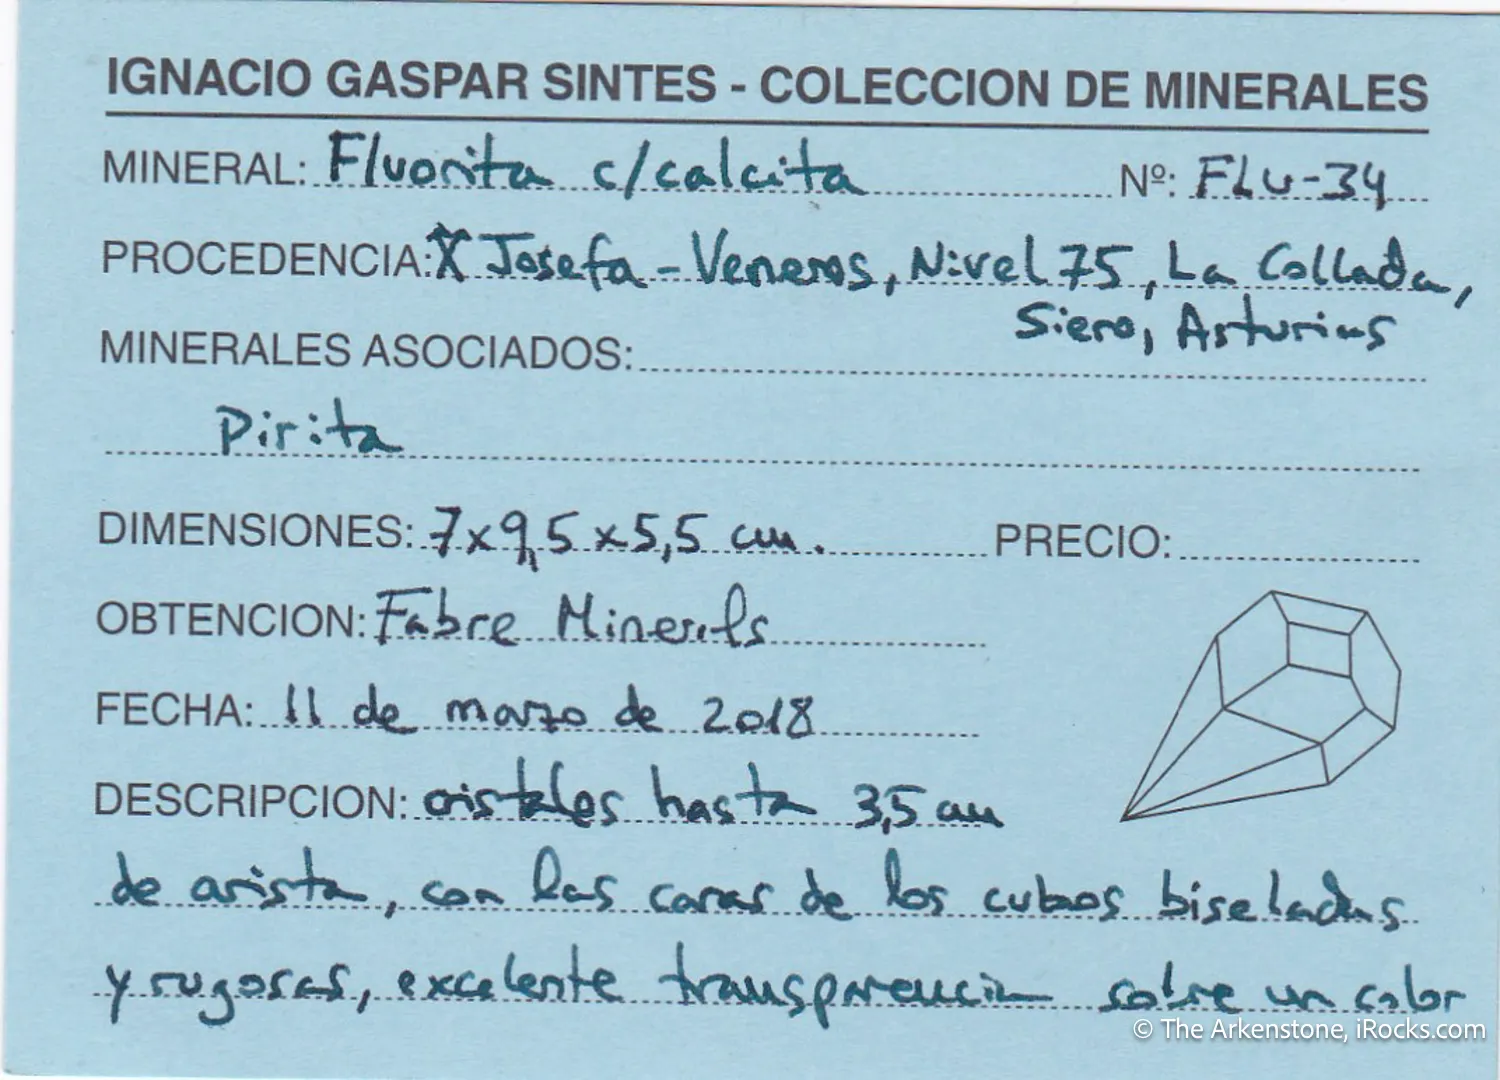 IGNACIO GASPAR SINTES - COLECCION DE MINERALES
MINERAL: Fluorita c/calcita Nº: FLU-34
PROCEDENCIA: Josefa-Veneros, Nivel 75, La Collada,
Siero, Asturias
MINERALES ASOCIADOS:
Pirita
DIMENSIONES: 7x9,5x5,5 cm. PRECIO:
OBTENCION: Fabre Minerals
FECHA: 11 de marzo de 2018
DESCRIPCION: cristales hasta 3,5 cm
de arista, con las caras de los cubos biseladas
y rugosas, excelente transparencia sobre un color
© The Arkenstone, iRocks.com